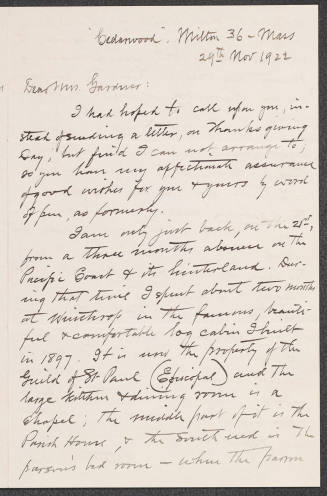 "Cedarwood". Milton 36 - Mass
29th Nov 1922
Dear Mrs. Gardner:
I had hoped to call upon you, in-
stead of sending a letter, on Thanksgiving
Day, but find I can not arrange to,
so you have my affectionate assurance
of good wishes for you & yours by word
of pen, as formerly.
I am only just back, on the 21st,
from a three months absence on the
Pacific Coast & its hinterland. Dur-
ing that time I spent about two months
at Winthrop in the famous, beauti-
ful & comfortable log cabin I built
in 1897. It is now the property of the
Guild of St Paul (Episcopal) and the
large kitchen & dining room is a
chapel; the middle part of it is the
Parish House, & the south end is the
parson's bed room - when the parson